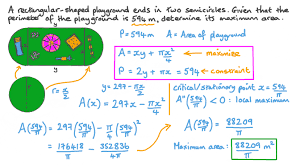 A rectangular-shaped playground ends in two semicircles. Given that the
perimeter of the playground is 594 m, determine its maximum area.
y
x
y
P = 594 m
A = Area of playground
A = xy + πx²/4
maximize
P = 2y + πx = 594
constraint
r = x/2
y = 297 - πx/2
A(x) = 297x - πx²/4
critical/stationary point x = 594/π
A''(594/π) < 0 : local maximum
A(594/π) = 297(594/π) - π/4(594/π)²
A(594/π) = 88209/π
= 176418/π - 352836/4π
Maximum area: 88209/π m²